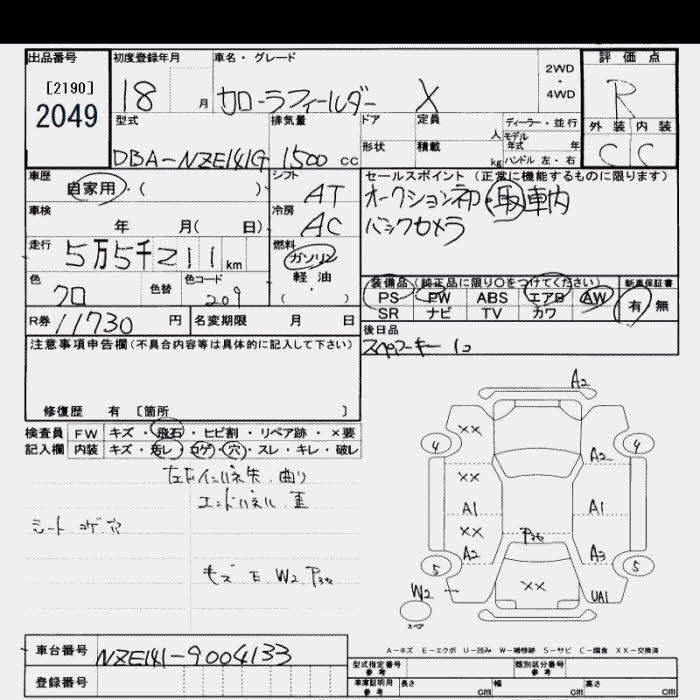 出品番号 初度登録年月 車名・グレード 2WD・4WD 評価点
[2190]
2049
18 月 カローラフィールダー X R
型式 排気量 ドア 定員 人 ディーラー・並行 外装 内装
形状 積載 kg モデル年式 年 ハンドル 左・右
DBA-NZE141G 1500 cc C C
車歴 自家用・( ) シフト AT
セールスポイント (正常に機能するものに限ります)
車検 年 月( 日) 冷房 AC
オークション初 取 車内
バックカメラ
走行 5万5千211 km 燃料 ガソリン 軽油・( )
色 クロ 色替 色コード 209
装備品(純正品に限り〇をつけてください) 新車保証書
PS PW ABS エアB AW 有 無
SR ナビ TV カワ
R券 11730 円 名変期限 月 日
後日品
スペアーキー
注意事項申告欄(不具合内容等は具体的に記入して下さい)
修復歴 有 [箇所 ]
検査員 FW キズ・飛石・ヒビ割・リペア跡・×要
記入欄 内装 キズ・汚レ・コゲ・穴・スレ・キレ・破レ
曲り
エンドパネル 歪
シート コゲ 穴
キズ E W2 P36
A2
4 XX 4
A2
XX
A1 A1
XX P36
A2 A3
5 XX 5
W2 UA1
スペア
A-キズ E-エクボ U-凹み W-補修跡 S-サビ C-腐食 XX-交換済
車台番号 NZE141-9004133
型式指定番号 参考 類別区分番号 参考
登録番号
車庫証明用 参考 長さ cm 幅 cm 高さ cm